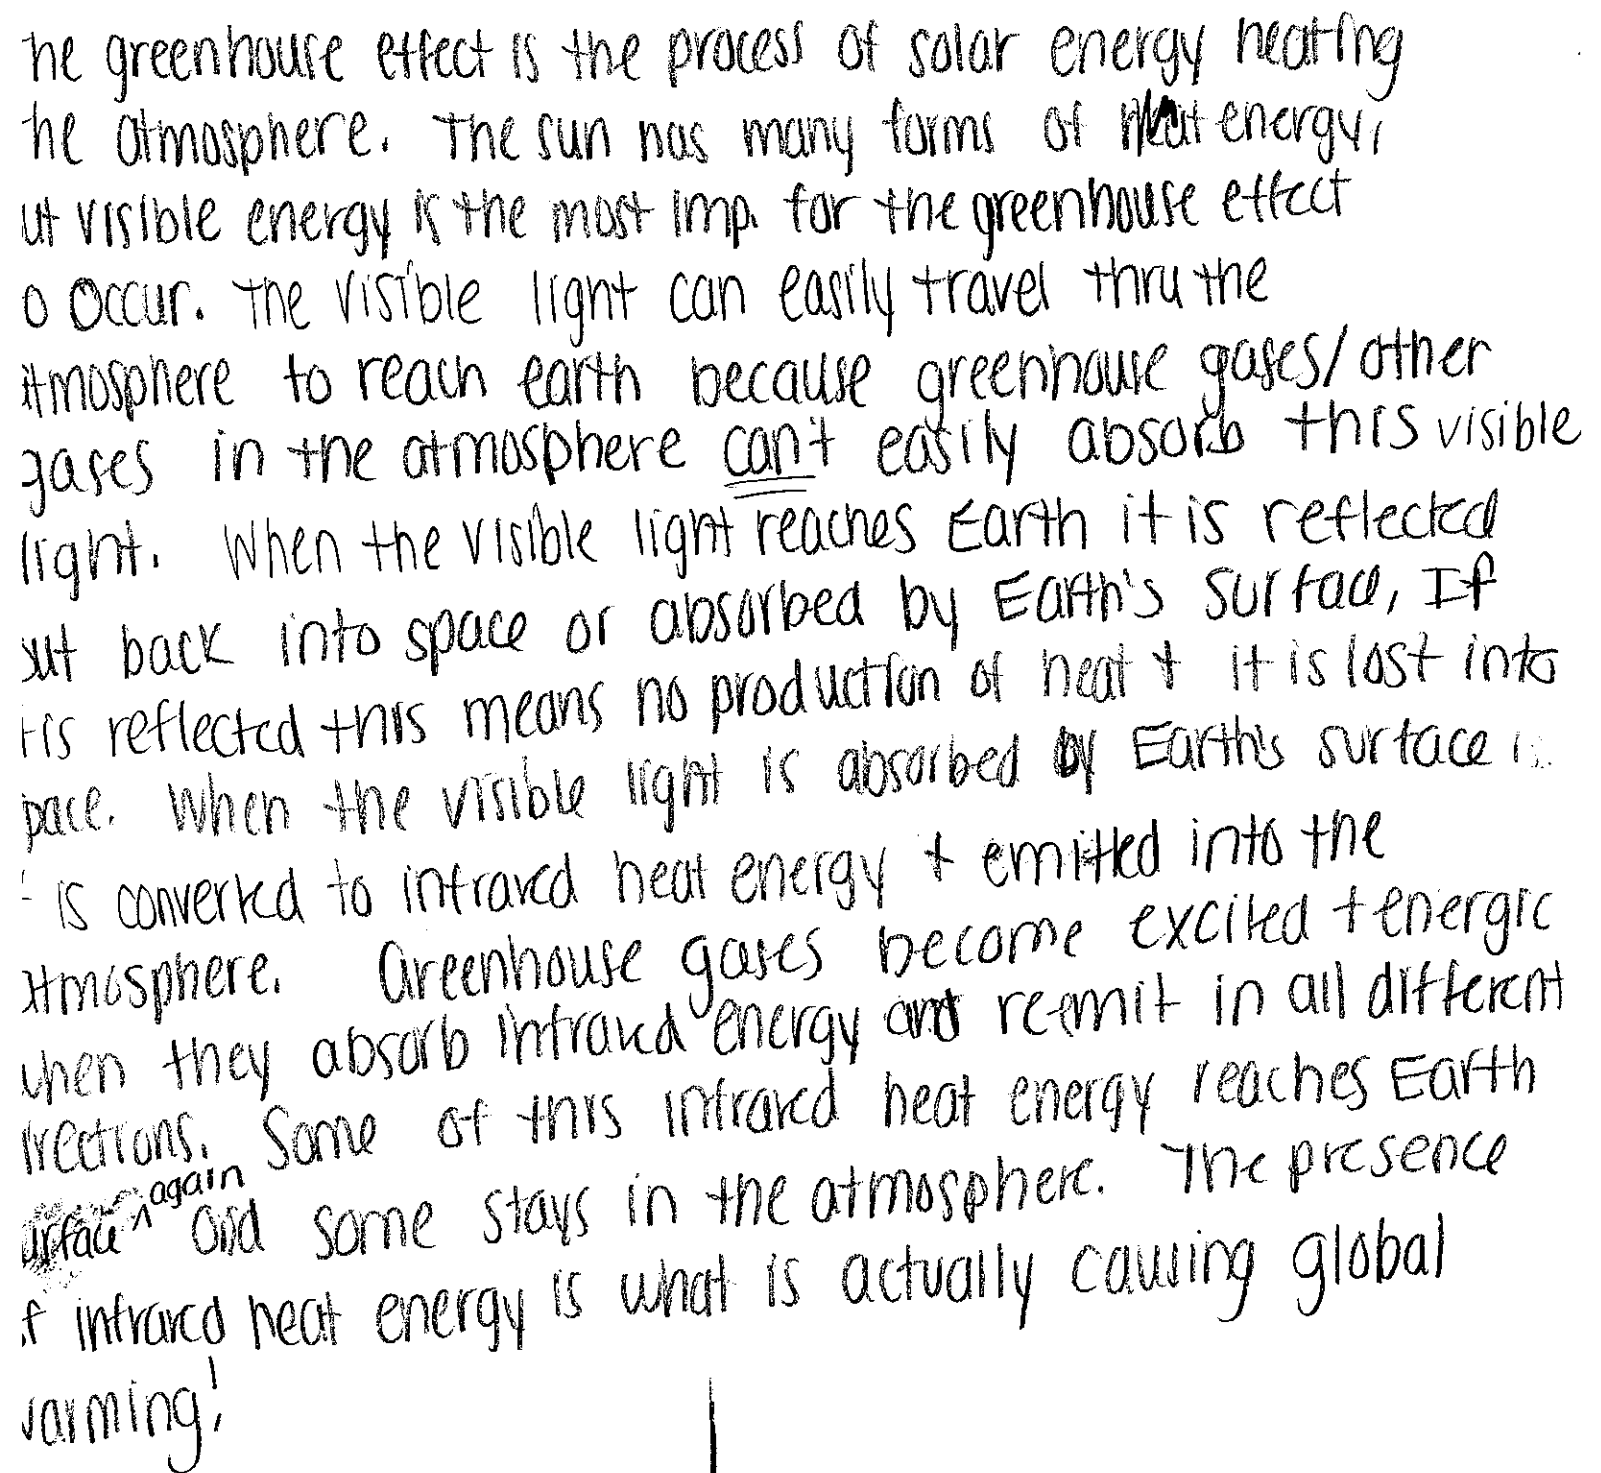 he greenhouse effect is the process of solar energy heating
he atmosphere. The sun has many forms of heat energy,
ut visible energy is the most imp. for the greenhouse effect
o occur. The visible light can easily travel thru the
atmosphere to reach earth because greenhouse gases/other
gases in the atmosphere can't easily absorb this visible
light. When the visible light reaches Earth it is reflected
out back into space or absorbed by Earth's surface, If
t is reflected this means no production of heat + it is lost into
pace. When the visible light is absorbed by Earth's surface i
is converted to infrared heat energy + emitted into the
atmosphere. Greenhouse gases become excited + energic
when they absorb infrared energy and re-emit in all different
irections. Some of this infrared heat energy reaches Earth
urface again and some stays in the atmosphere. The presence
of infrared heat energy is what is actually causing global
warming!